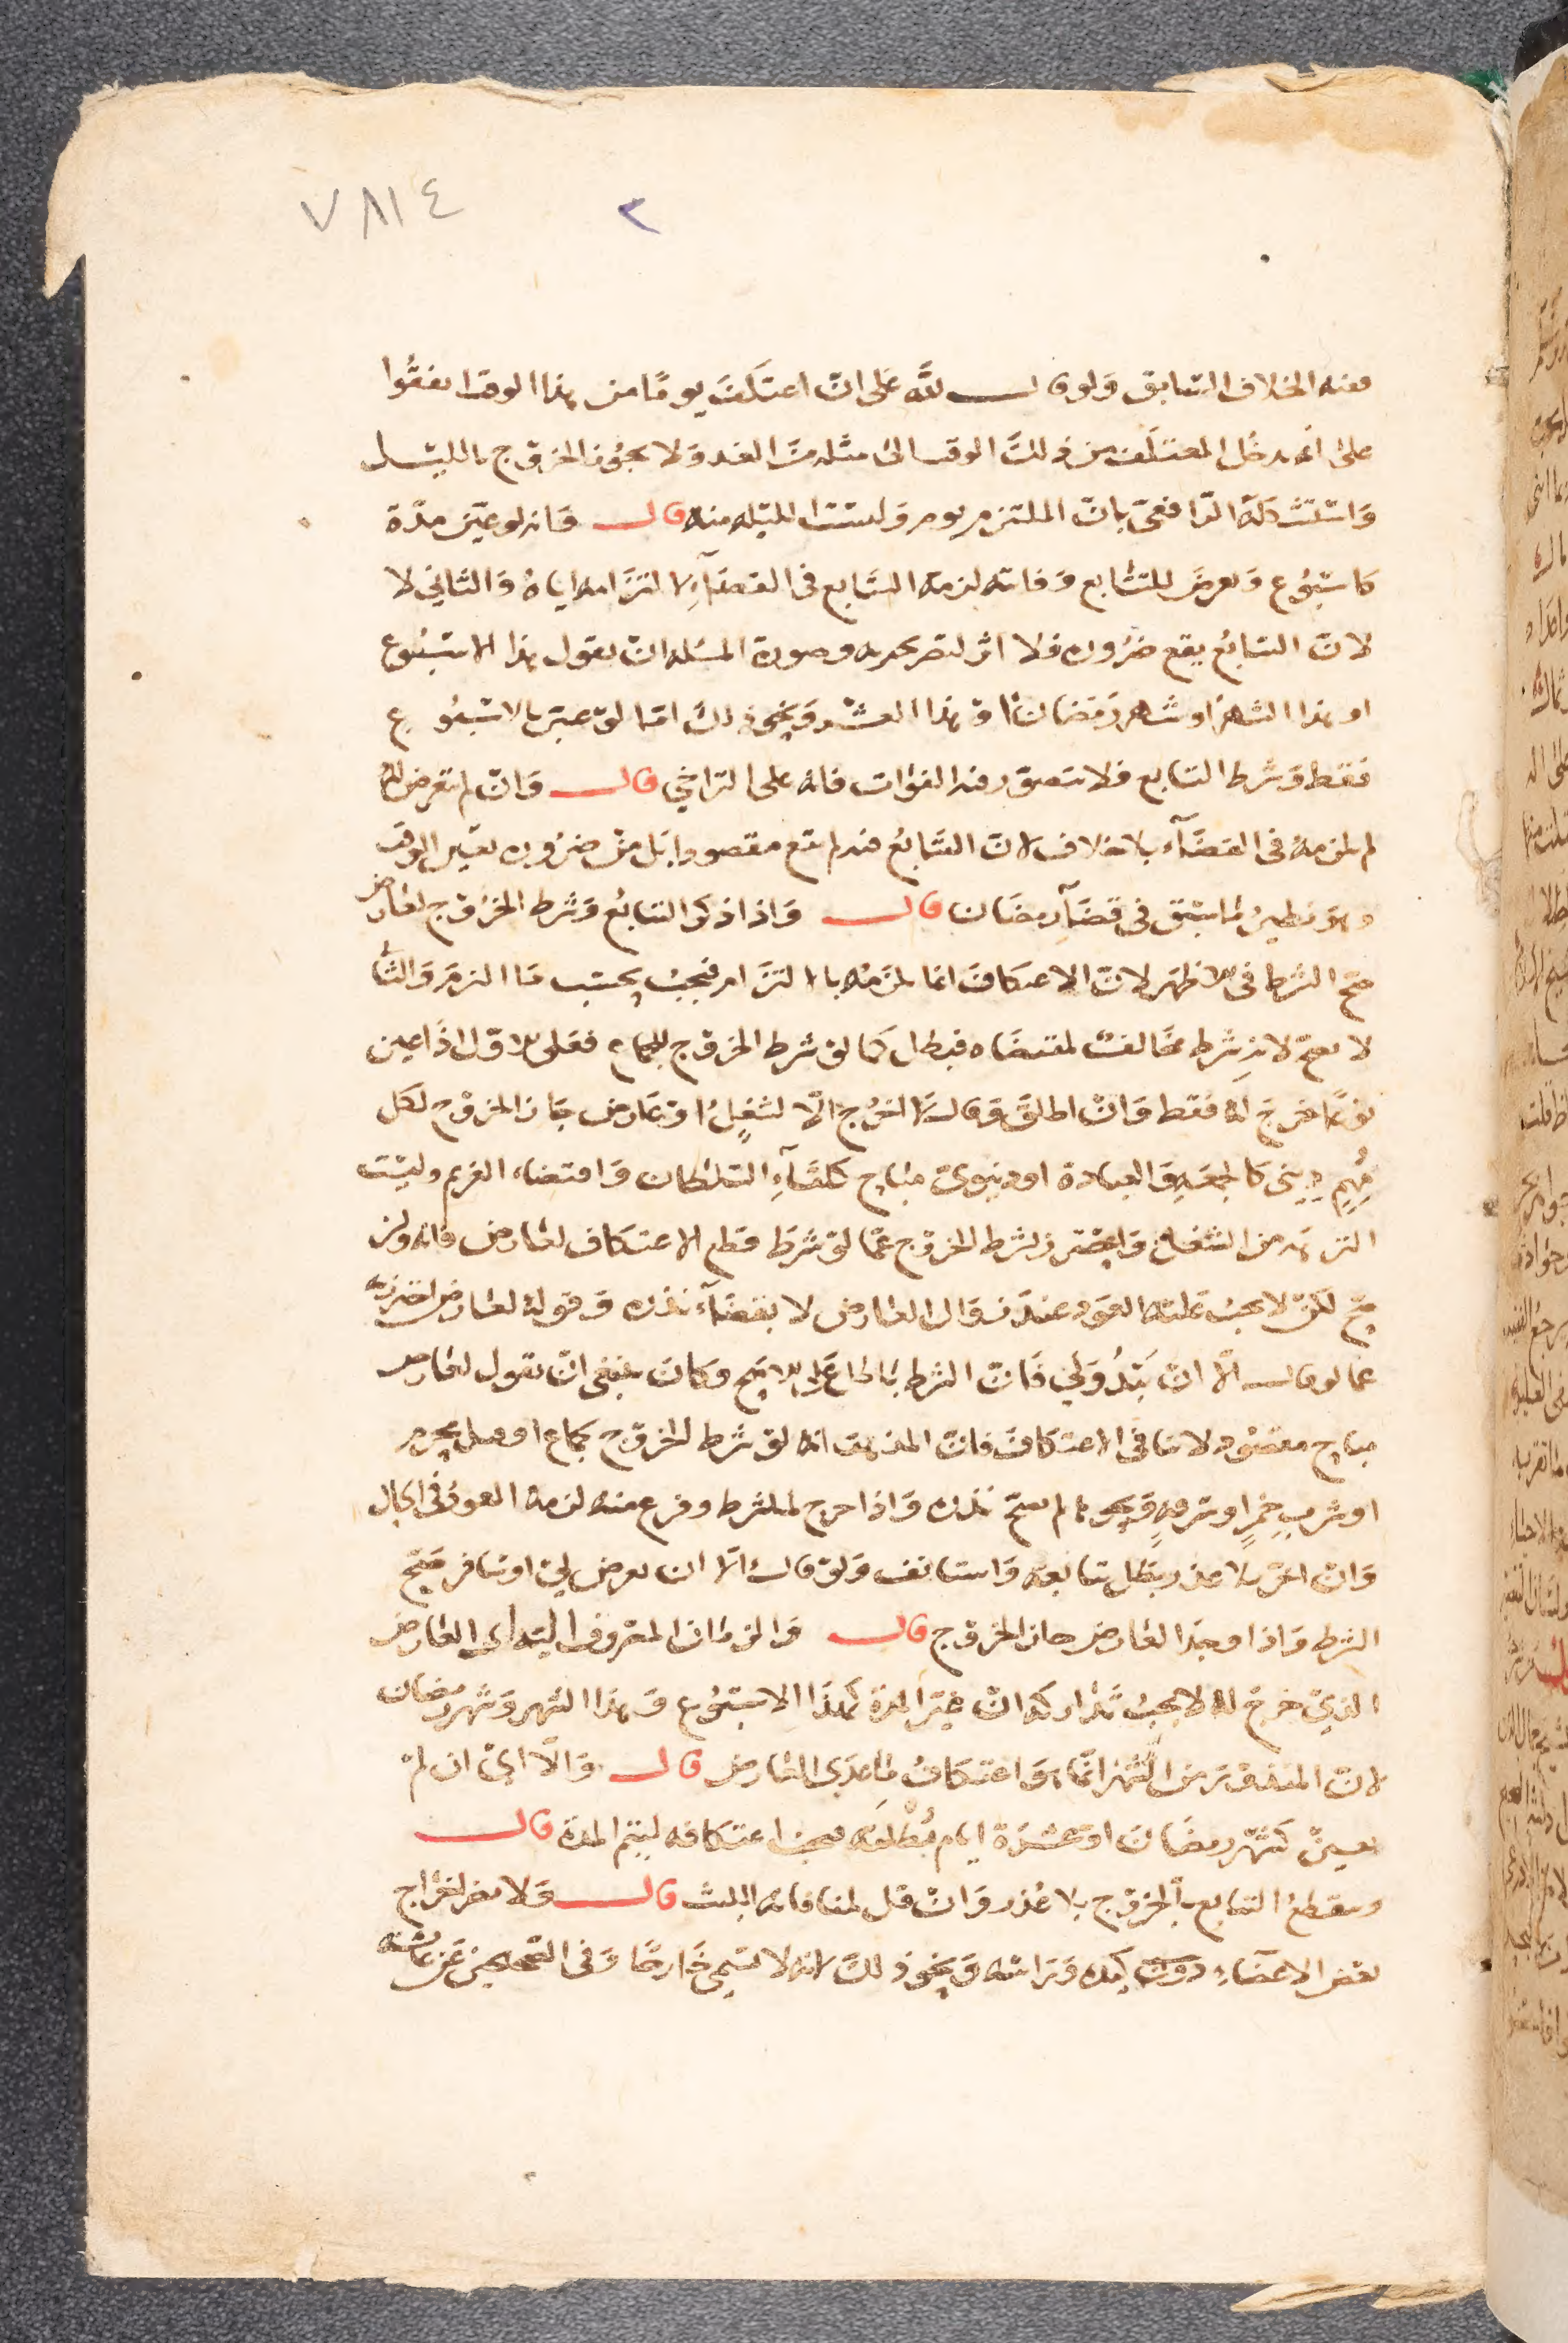 ٧٨١٤ ٢
ففيه الخلاف السابق وَلو قال لله عَلى ان اعتكف يومًا من هذا الوقت اتفقوا
على انه يدخل المعتكف من ذلك الوقت الى مثله من الغد وَلا يجوز الخروج بالليل
وَاستشكله الرافعي بان الملتزم يوم وَليست الليله منه قال وَانه لو عين مدة
كاسبوع وَتعرض للتتابع وَفاته لزمه التتابع في القضآء لالتزامه اياه وَالثاني لا
لان التتابع يقع ضروره فلا اثر لتصريحه به وصورة المسئله ان يقول هذا الاسبوع
او هذا الشهر او شهر رمضان او هذا العشر وَنحو ذلك اما لو عبر بالاسبوع
فقط وَشرط التتابع فلا يتصور فيه الفوات فانه على التراخي قال وَان لم يتعرض له
لم يلزمه في القضآء بلا خلاف لان التتابع فيه لم يقع مقصودا بَل من ضروره تعيين الوقت
وهو نظير ما سبق في قضآء رمضان قال وَاذا ذكر التتابع وَشرط الخروج لعارض
صح الشرط في الاظهر لان الاعتكاف انما يلزمه بالالتزام فيجب بحسب ما التزم وَالثاني
لا يصح لانه شرط مخالف لمقتضاه فبطل كما لو شرط الخروج للجماع فعلى الاول اذا عين
نوعًا خرج له فقط وَان اطلق وَقال لا اخرج الّا لشغل او عارض جاز الخروج لكل
مُهِمٍ ديني كالجمعه وَالعيادة او دنيوي مباح كلقآء السلطان وَاقتضاء الغريم وليست
النزهه من الشغل وَاحترز بشرط الخروج عما لو شرط قطع الاعتكاف لعارض فانه وان
صح لكن لا يجب عليه العود عند زوال العارض لا بقضآء نذره وَقوله لعارض احترز به
عما لو قال الّا ان يَبْدُوَ لي فَان الشرط باطل على الاصح وكان ينبغي ان يقول لعارض
مباح مقصود لا ينافي الاعتكاف فان المذهب انه لو شرط الخروج بجماع او قتل محرم
او شرب خمر او سرقه وَنحوها لم يصح نذره وَاذا خرج للشرط وفرغ منه لزمه العود في الحال
وَان اخر بلا عذر بطل تتابعه وَاستانف وَلو قال الّا ان يعرض لي او اسافر صح
الشرط وَاذا وجد العارض جاز الخروج قال وَالزمان المصروف اليه اي العارض
الذي خرج له لا يجب تداركه ان عين المدة كهذا الاسبوع وَهذا الشهر وَشهر رمضان
لان المنذور من الشهر انما هو اعتكاف ما عدى العارض قال وَالّا اي ان لم
يعين كشهر رمضان او عشرة ايام مُطلقه فيجب اعتكافه ليتم المدة قال
وينقطع التتابع بالخروج بلا عُذر وَان قل لمنافاته اللبث قال وَلا يضر اخراج
بعض الاعضآء كيده وَراسه وَنحو ذلك لانه لا يسمى خارجًا وَفي الصحيحين عَن عائشه